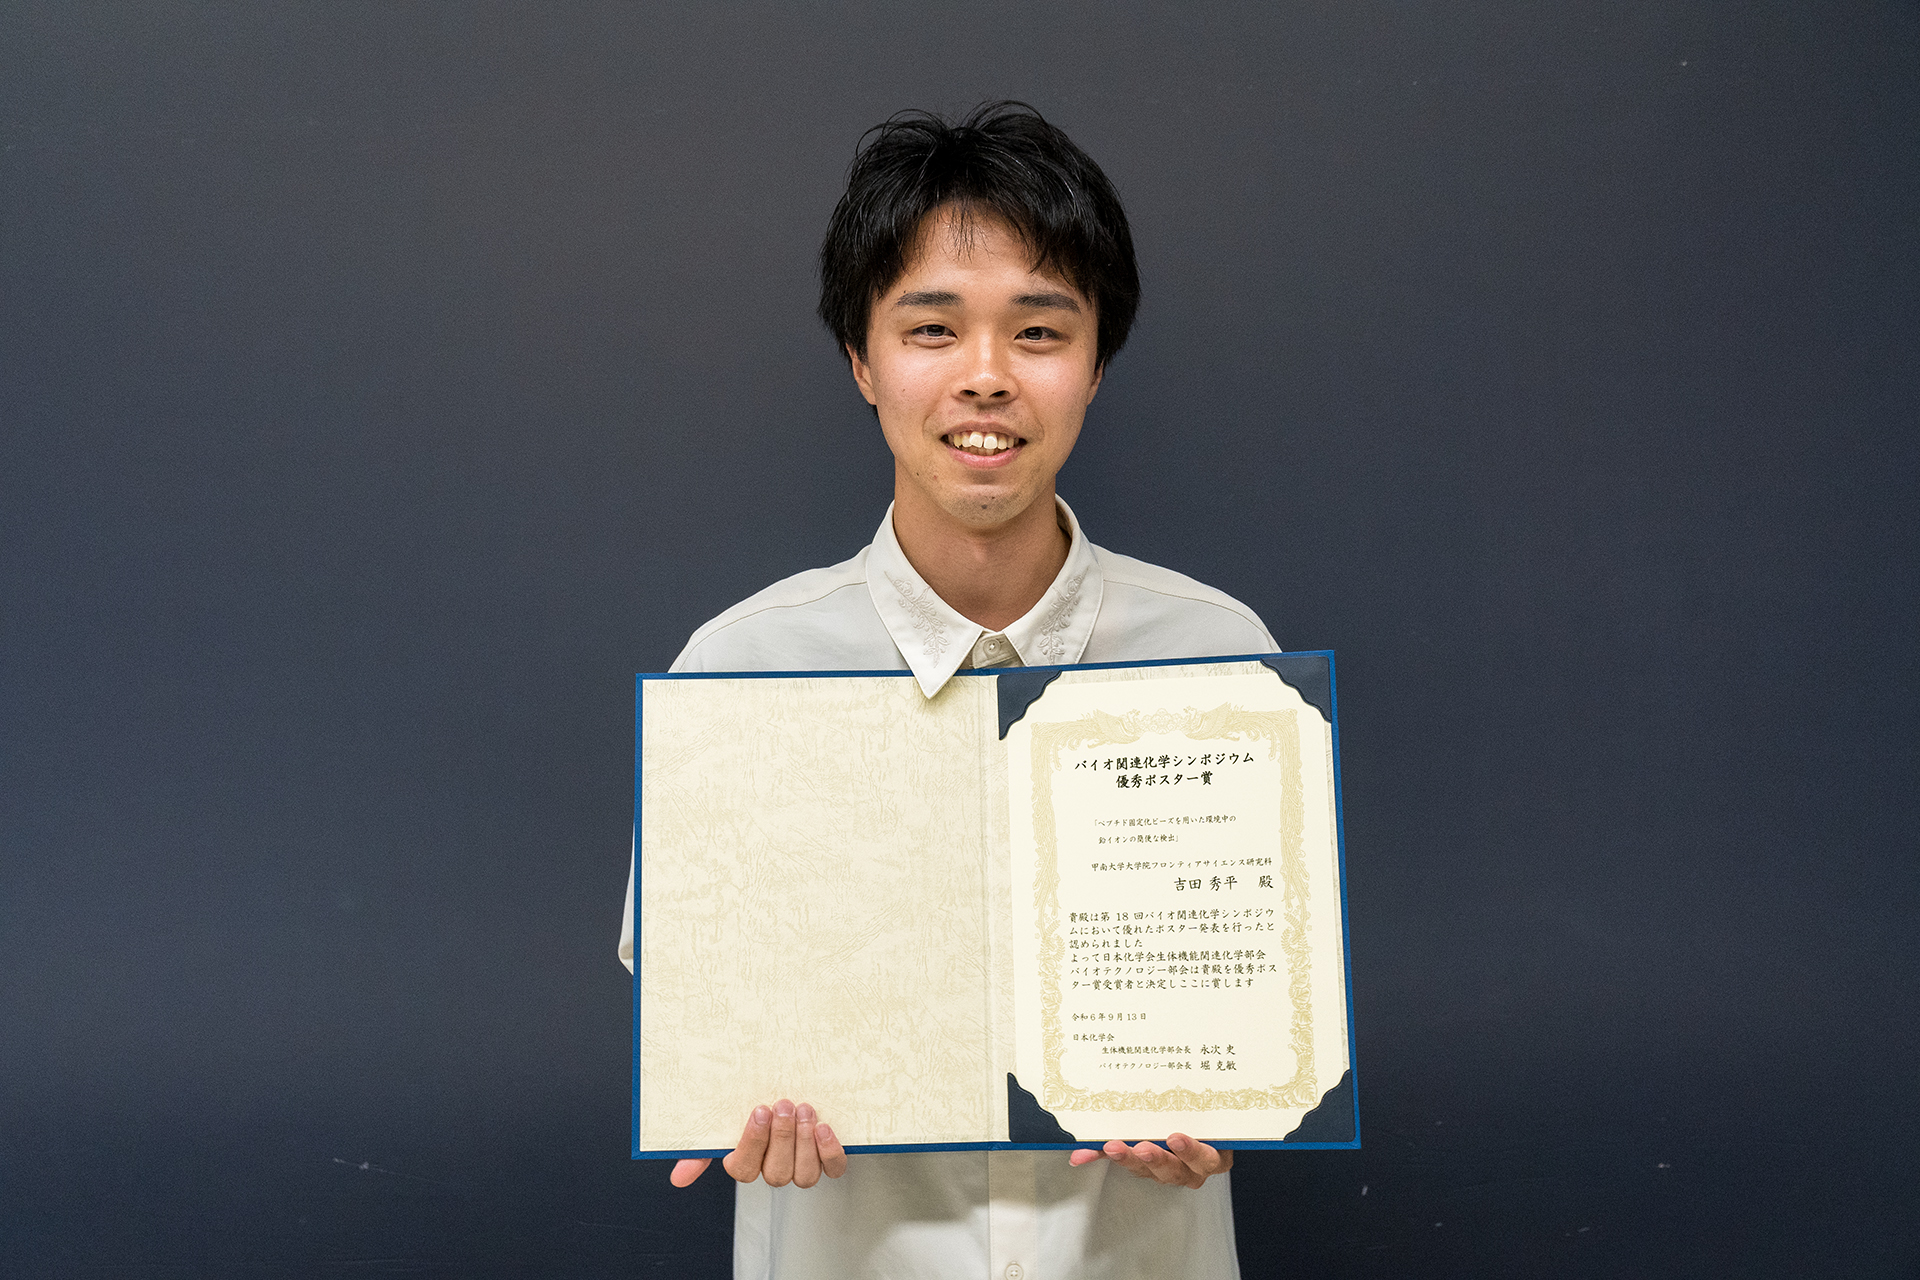 バイオ関連化学シンポジウム
優秀ポスター賞
「ペプチド固定化ビーズを用いた環境中の
鉛イオンの簡便な検出」
甲南大学大学院フロンティアサイエンス研究科
吉田 秀平 殿
貴殿は第 18 回バイオ関連化学シンポジウ
ムにおいて優れたポスター発表を行ったと
認められました
よって日本化学会生体機能関連化学部会
バイオテクノロジー部会は貴殿を優秀ポス
ター賞受賞者と決定しここに賞します
令和6年9月13日
日本化学会
生体機能関連化学部会長 永次 史
バイオテクノロジー部会長 堀 克敏